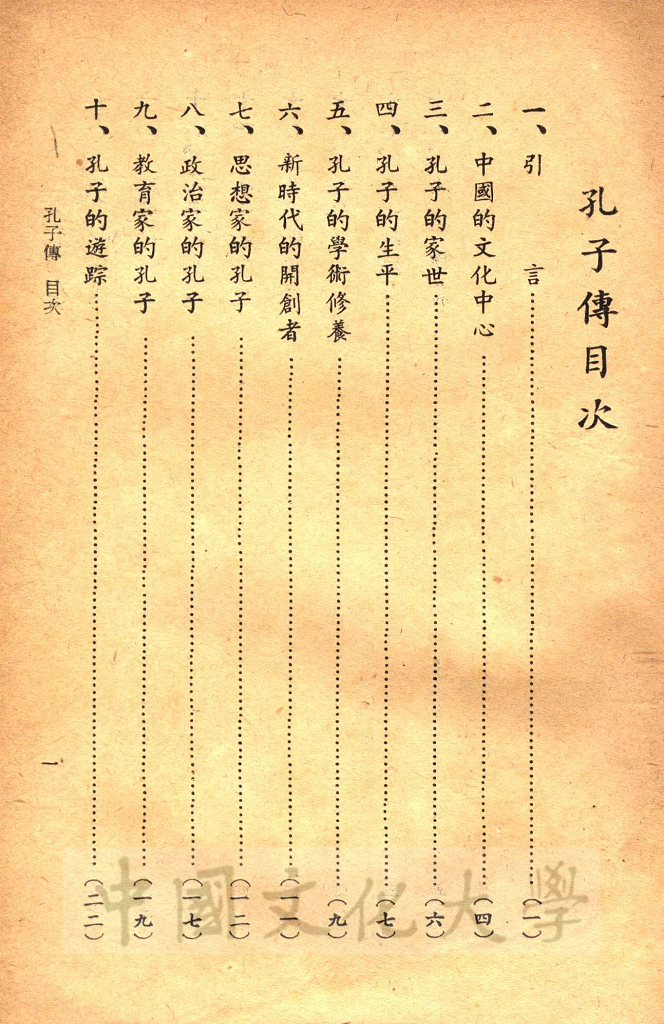 孔子傳目次
一、引　　言……（一）
二、中國的文化中心……（四）
三、孔子的家世……（六）
四、孔子的生平……（七）
五、孔子的學術修養……（九）
六、新時代的開創者……（一一）
七、思想家的孔子……（一二）
八、政治家的孔子……（一七）
九、教育家的孔子……（一九）
十、孔子的遊踪……（二二）
孔子傳　目次
一
中國文化大學